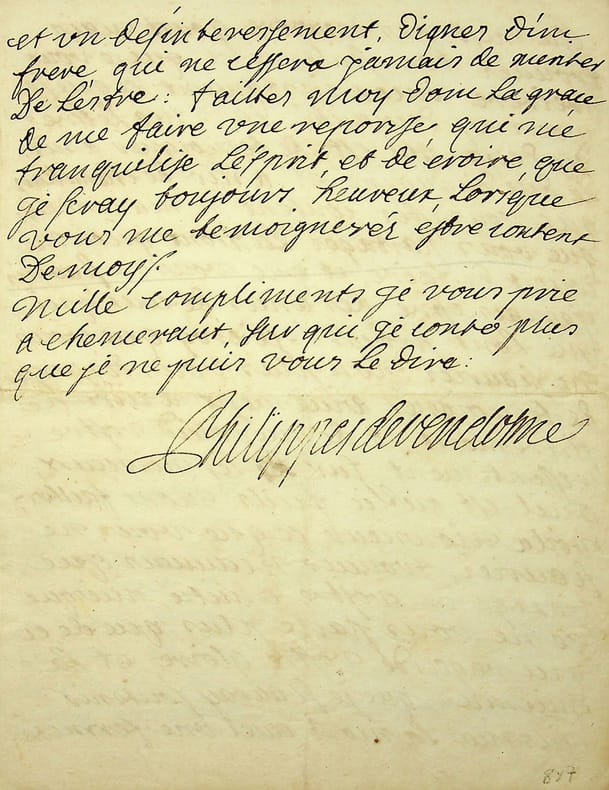 et un desinteressement, dignes d'un
frere qui ne cessera jamais de meriter
De L'estre : faittes moy dom La grace
de me faire une reponse qui me
tranquilise L'esprit, et de croire, que
je seray toujours heureux, Lorsque
vous me temoignerés estre content
De moy.
mille compliments je vous prie
a chemeraut, sur qui je conte plus
que je ne puis vous Le dire :
Philippes de vendosme
847